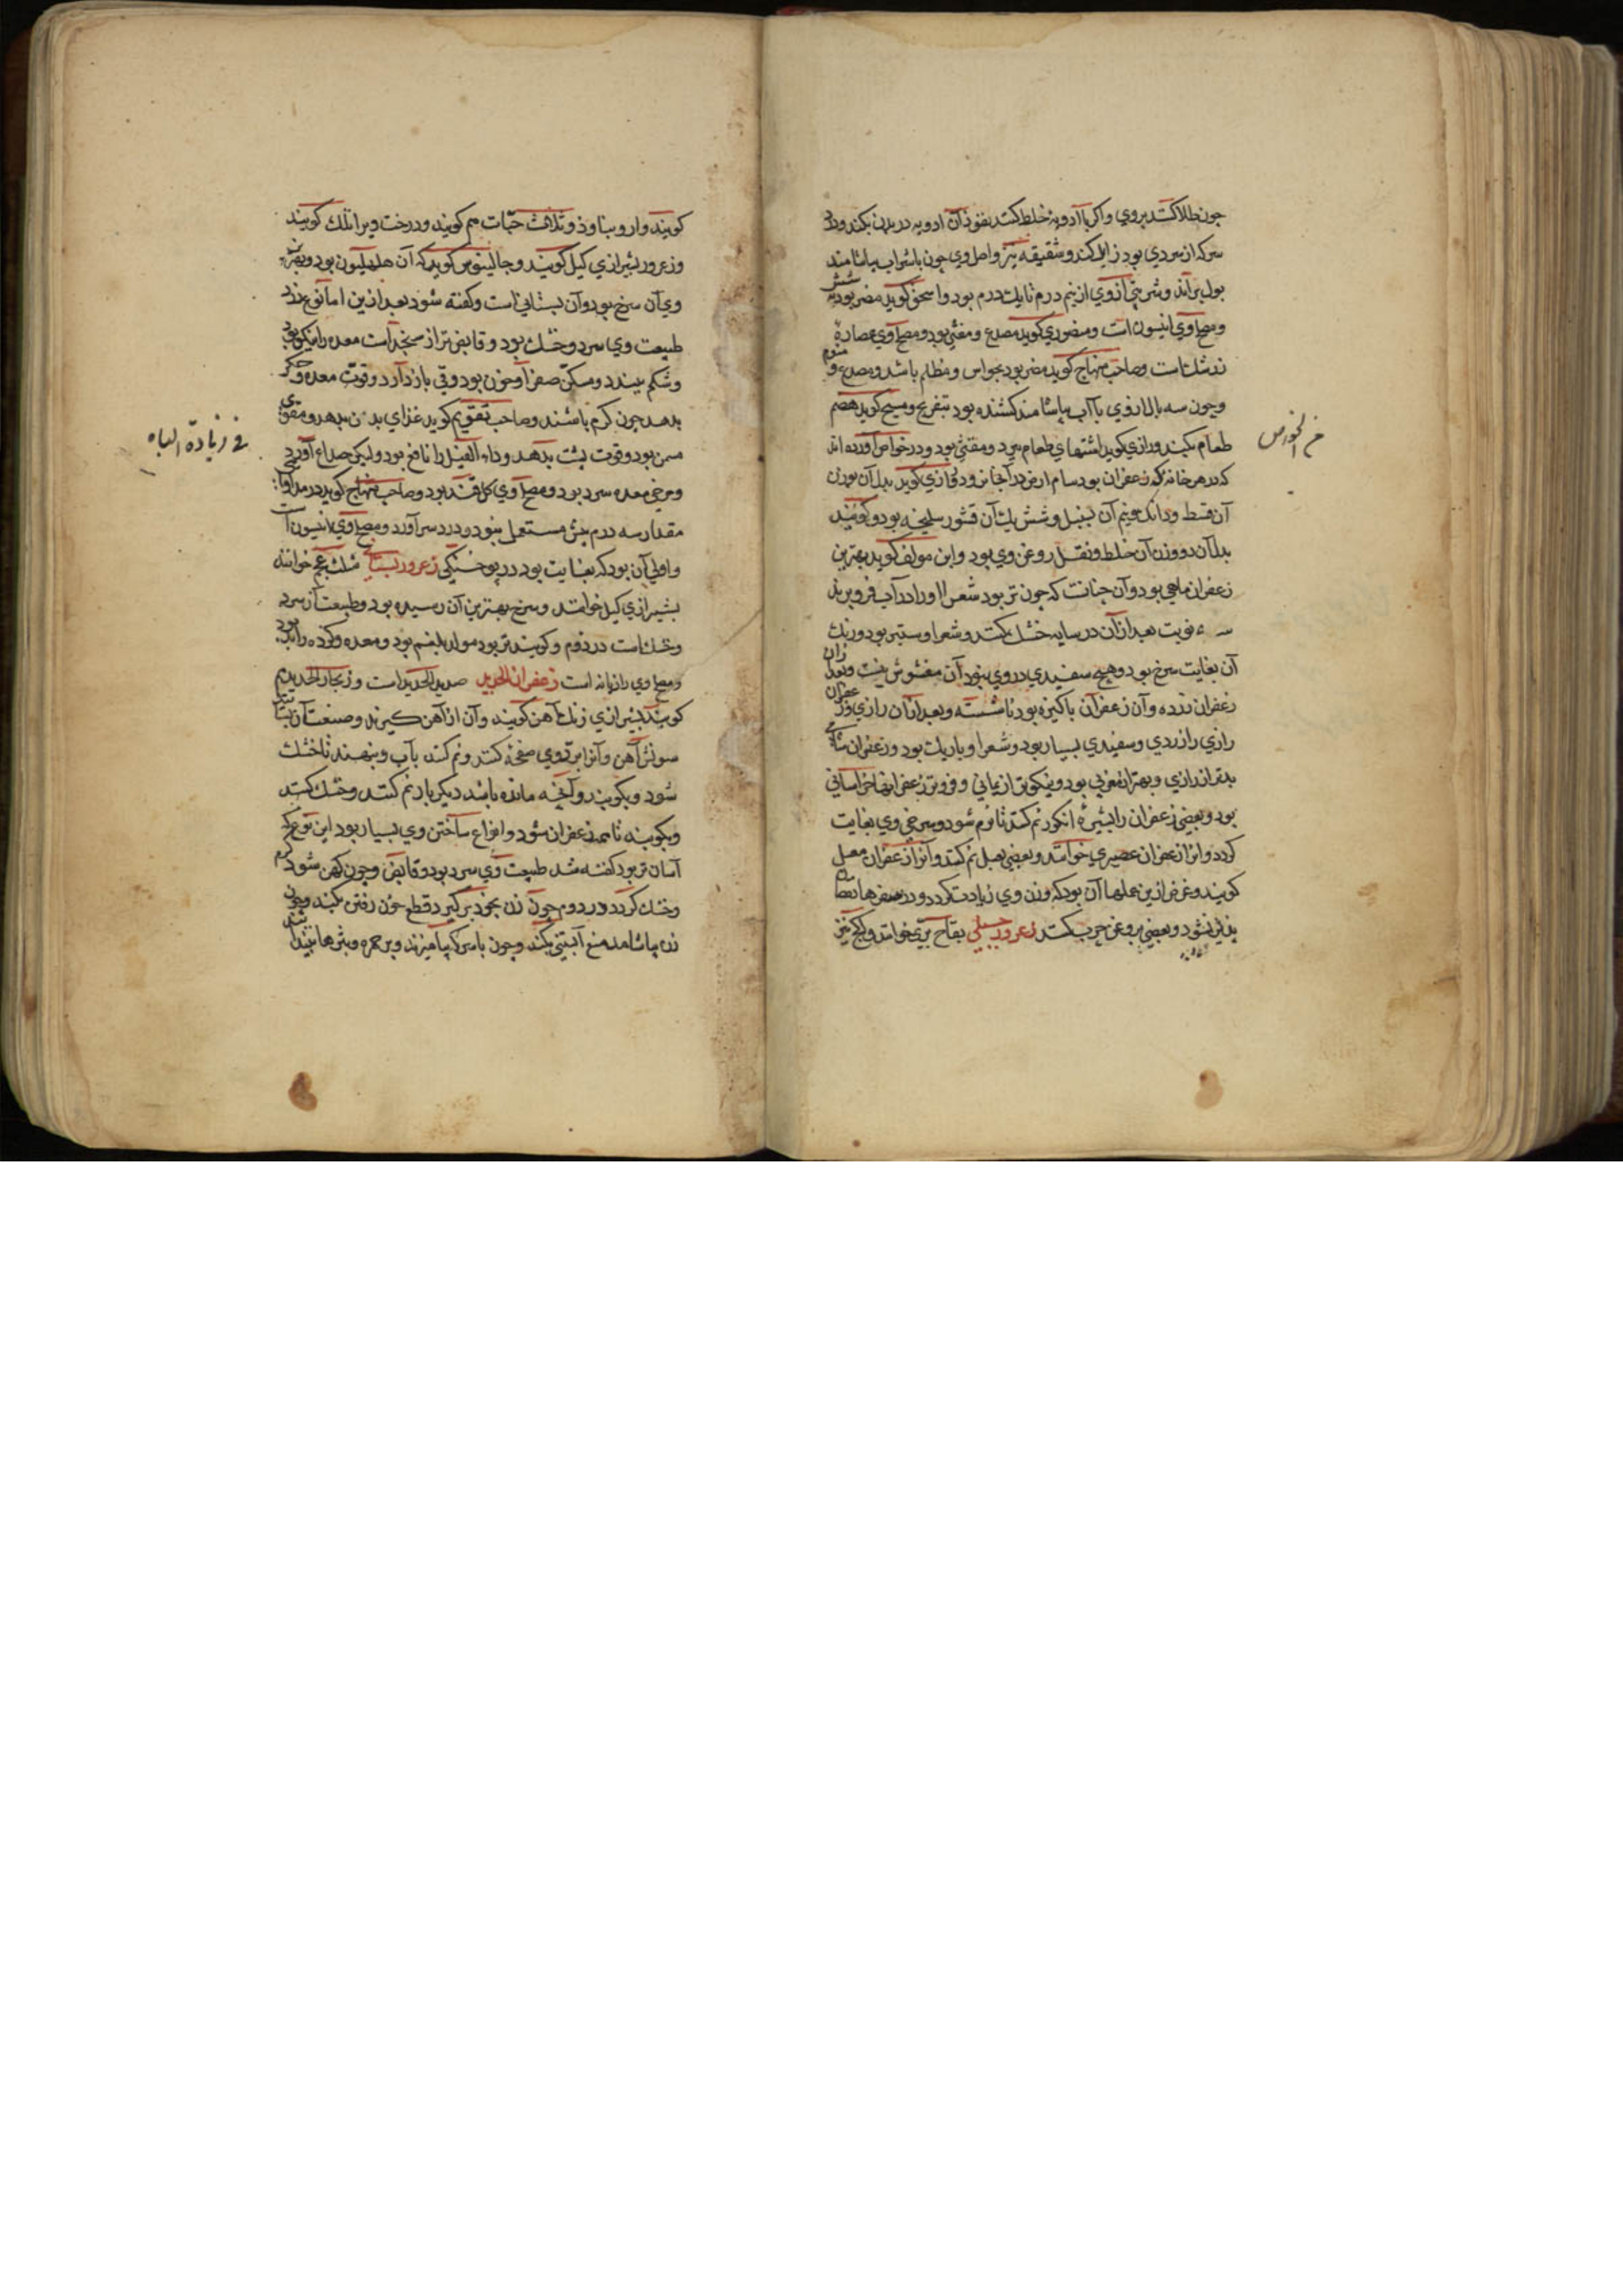 چون طلا کنند بروی و اکر با ادویه خلط کنند نفوذ آن ادویه در بدن بکند و درد
سر که از سردی بود زایل کند و شقیقه نیز و اصل وی چون با شراب بیاشامند
بول براند و شربتی از وی از نیم درم تا یک درم بود و اسحق کوید مضر بود بشش
و مصلح وی انیسون است و منصوری کوید مصدع و مغثی بود و مصلح وی عصاره
زرشک است و صاحب منهاج کوید مضر بود بحواس و مظلم باشد و مصدع و منوم
و چون سه بالا از وی با آب بیاشامند کشنده بود بتفریح و مسیح کوید هضم
طعام بکند و رازی کوید اشتهای طعام ببرد و مقئی بود و در خواص آورده اند
که در هر خانه که زعفران بود سام ابرص در آنجا نرود و رازی کوید بدل آن بوزن
آن قسط و دانک و نیم آن سنبل و شش یک آن قشور سلیخه بود و کویند
بدل آن دو وزن آن خلط و ثفل روغن وی بود و ابن مولف کوید بهترین
زعفران ماهی بود و آن چنانست که چون تر بود شعر او را در آب فرو برند
سه نوبت بعد از آن در سایه خشک کنند و شعر او ستبر بود و رنک
آن بغایت سرخ بود و هیچ سفیدی در وی نبود آن مغشوش نیست و بعد از آن
زعفران نرده و آن زعفران پاکیزه بود ناشسته و بعد از آن رازی و زعفران
رازی را زردی و سفیدی بسیار بود و شعر او باریک بود و زعفران
بدتر از رازی و بهتر از مغربی بود و نیکوتر از یمانی و فروتر زعفرانها خراسانی
بود و بعضی زعفران را بشیره انکور نم کنند تا نرم شود و سرخی وی بغایت
کردد و انرا زعفران عصیری خوانند و بعضی بعسل نم کنند و آنرا زعفران معسل
کویند و غرض ازین عملها آن بود که وزن وی زیادت کردد و در سفرها نقصان
پذیر نشود و بعضی بروغن چرب کنند زعرور جبلی تفاح بری خوانند و کیل نیز
م الخواص
کویند و اروسا و ذو ثلاث حبات هم کویند و درخت ویرا نلک کویند
و زعرور بشیرازی کیل کویند و جالینوس کوید که آن بود و بهترین
وی آن سرخ بود و آن بستانی است و کفته شود بعد ازین اما نوع زرد
طبیعت وی سرد و خشک بود و قابض تر از سنجد است معده را نیکو بود
و شکم ببندد و مسکن صفرا و خون بود و قی باز دارد و قوت معده و جکر
بدهد چون کرم باشند و صاحب تقویم کوید غذای بدن بدهد و مقوی
مسمن بود و قوت پشت بدهد و داء الفیل را نافع بود و لیکن صداع آورد
و مرخی معده سرد بود و مصلح وی کل قند بود و صاحب منهاج کوید در مداوا
مقدار سه درم بیش مستعمل نبود و درد سر آورد و مصلح وی انیسون است
و اولی آن بود که بغایت بود در پوختکی زعرور بستانی مثلث عجم خوانند
بشیرازی کیل خوانند و سرخ بهترین آن رسیده بود و طبیعت آن سرد
و خشک است در دوم و کویند تر بود مولد بلغم بود و معده و کرده را بد بود
و مصلح وی رازیانه است زعفران الحدید صدید الحدید است و زنجار الحدید هم
کویند بشیرازی زنک آهن کویند و آن از آهن کیرند و صنعت آن
سونش آهن و آنرا بر روی صفحه کنند و نم کنند بآب و بنهند تا خشک
شود و بکوبند و آنچه مانده باشد دیکر بار نم کنند و خشک کنند
و بکوبند تا همه زعفران شود و انواع ساختن وی بسیار بود این نوع که
آسان تر بود کفته شد طبیعت وی سرد بود و قابض و چون کهن شود کرم
و خشک کردد در دوم چون زن بخود بر کیرد قطع خون رفتن بکند و چون
زن بیاشامد منع آبستنی بکند و چون با سرکه بیامیزند و بر حمره و بثرها
فی زیادة الباه